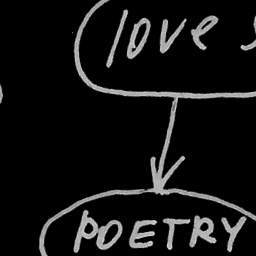 love
POETRY